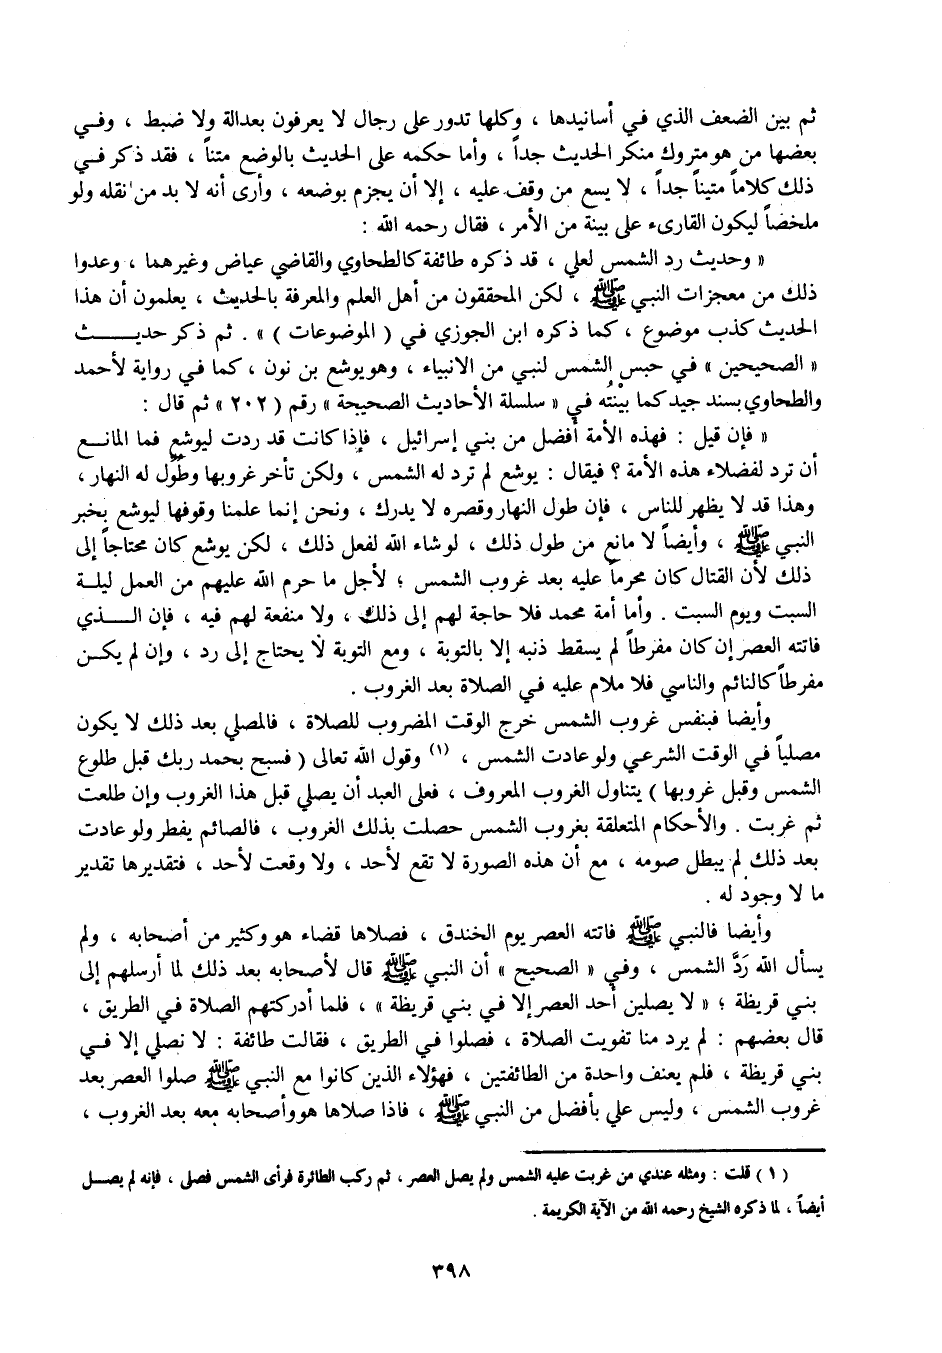 ثم بين الضعف الذي في أسانيدها ، وكلها تدور على رجال لا يعرفون بعدالة ولا ضبط ، وفي
بعضها من هو متروك منكر الحديث جداً ، وأما حكمه على الحديث بالوضع متناً ، فقد ذكر في
ذلك كلاماً متيناً جداً ، لا يسع من وقف عليه ، إلا أن يجزم بوضعه ، وأرى أنه لا بد من نقله ولو
ملخصاً ليكون القارىء على بينة من الأمر ، فقال رحمه الله :
« وحديث رد الشمس لعلي ، قد ذكره طائفة كالطحاوي والقاضي عياض وغيرهما ، وعدوا
ذلك من معجزات النبي ﷺ ، لكن المحققون من أهل العلم والمعرفة بالحديث ، يعلمون أن هذا
الحديث كذب موضوع ، كما ذكره ابن الجوزي في ( الموضوعات ) » . ثم ذكر حديــــــث
« الصحيحين » في حبس الشمس لنبي من الانبياء ، وهو يوشع بن نون ، كما في رواية لأحمد
والطحاوي بسند جيد كما بيْنتُه في « سلسلة الأحاديث الصحيحة » رقم ( ٢٠٢ » ثم قال :
« فإن قيل : فهذه الأمة أفضل من بني إسرائيل ، فإذا كانت قد ردت ليوشع فما المانــع
أن ترد لفضلاء هذه الأمة ؟ فيقال : يوشع لم ترد له الشمس ، ولكن تأخر غروبها وطُوِّل له النهار ،
وهذا قد لا يظهر للناس ، فإن طول النهار وقصره لا يدرك ، ونحن إنما علمنا وقوفها ليوشع بخبر
النبي ﷺ ، وأيضاً لا مانع من طول ذلك ، لو شاء الله لفعل ذلك ، لكن يوشع كان محتاجاً إلى
ذلك لأن القتال كان محرماً عليه بعد غروب الشمس ؛ لأجل ما حرم الله عليهم من العمل ليلــة
السبت ويوم السبت . وأما أمة محمد فلا حاجة لهم إلى ذلك ، ولا منفعة لهم فيه ، فإن الــــذي
فاتته العصر إن كان مفرطاً لم يسقط ذنبه إلا بالتوبة ، ومع التوبة لا يحتاج إلى رد ، وإن لم يكــن
مفرطاً كالنائم والناسي فلا ملام عليه في الصلاة بعد الغروب .
وأيضا فبنفس غروب الشمس خرج الوقت المضروب للصلاة ، فالمصلي بعد ذلك لا يكون
مصلياً في الوقت الشرعي ولو عادت الشمس ، (١) وقول الله تعالى ( فسبح بحمد ربك قبل طلوع
الشمس وقبل غروبها ) يتناول الغروب المعروف ، فعلى العبد أن يصلي قبل هذا الغروب وإن طلعت
ثم غربت . والأحكام المتعلقة بغروب الشمس حصلت بذلك الغروب ، فالصائم يفطر ولو عادت
بعد ذلك لم يبطل صومه ، مع أن هذه الصورة لا تقع لأحد ، ولا وقعت لأحد ، فتقديرها تقدير
ما لا وجود له .
وأيضا فالنبي ﷺ فاتته العصر يوم الخندق ، فصلاها قضاء هو وكثير من أصحابه ، ولم
يسأل الله رَدَّ الشمس ، وفي « الصحيح » أن النبي ﷺ قال لأصحابه بعد ذلك لما أرسلهم إلى
بني قريظة ؛ « لا يصلين أحد العصر إلا في بني قريظة » ، فلما أدركتهم الصلاة في الطريق ،
قال بعضهم : لم يرد منا تفويت الصلاة ، فصلوا في الطريق ، فقالت طائفة : لا نصلي إلا في
بني قريظة ، فلم يعنف واحدة من الطائفتين ، فهؤلاء الذين كانوا مع النبي ﷺ صلوا العصر بعد
غروب الشمس ، وليس علي بأفضل من النبي ﷺ ، فاذا صلاها هو وأصحابه معه بعد الغروب ،
( ١ ) قلت : ومثله عندي من غربت عليه الشمس ولم يصل العصر ، ثم ركب الطائرة فرأى الشمس فصلى ، فإنه لم يصــل
أيضاً ، لما ذكره الشيخ رحمه الله من الآية الكريمة .
٣٩٨